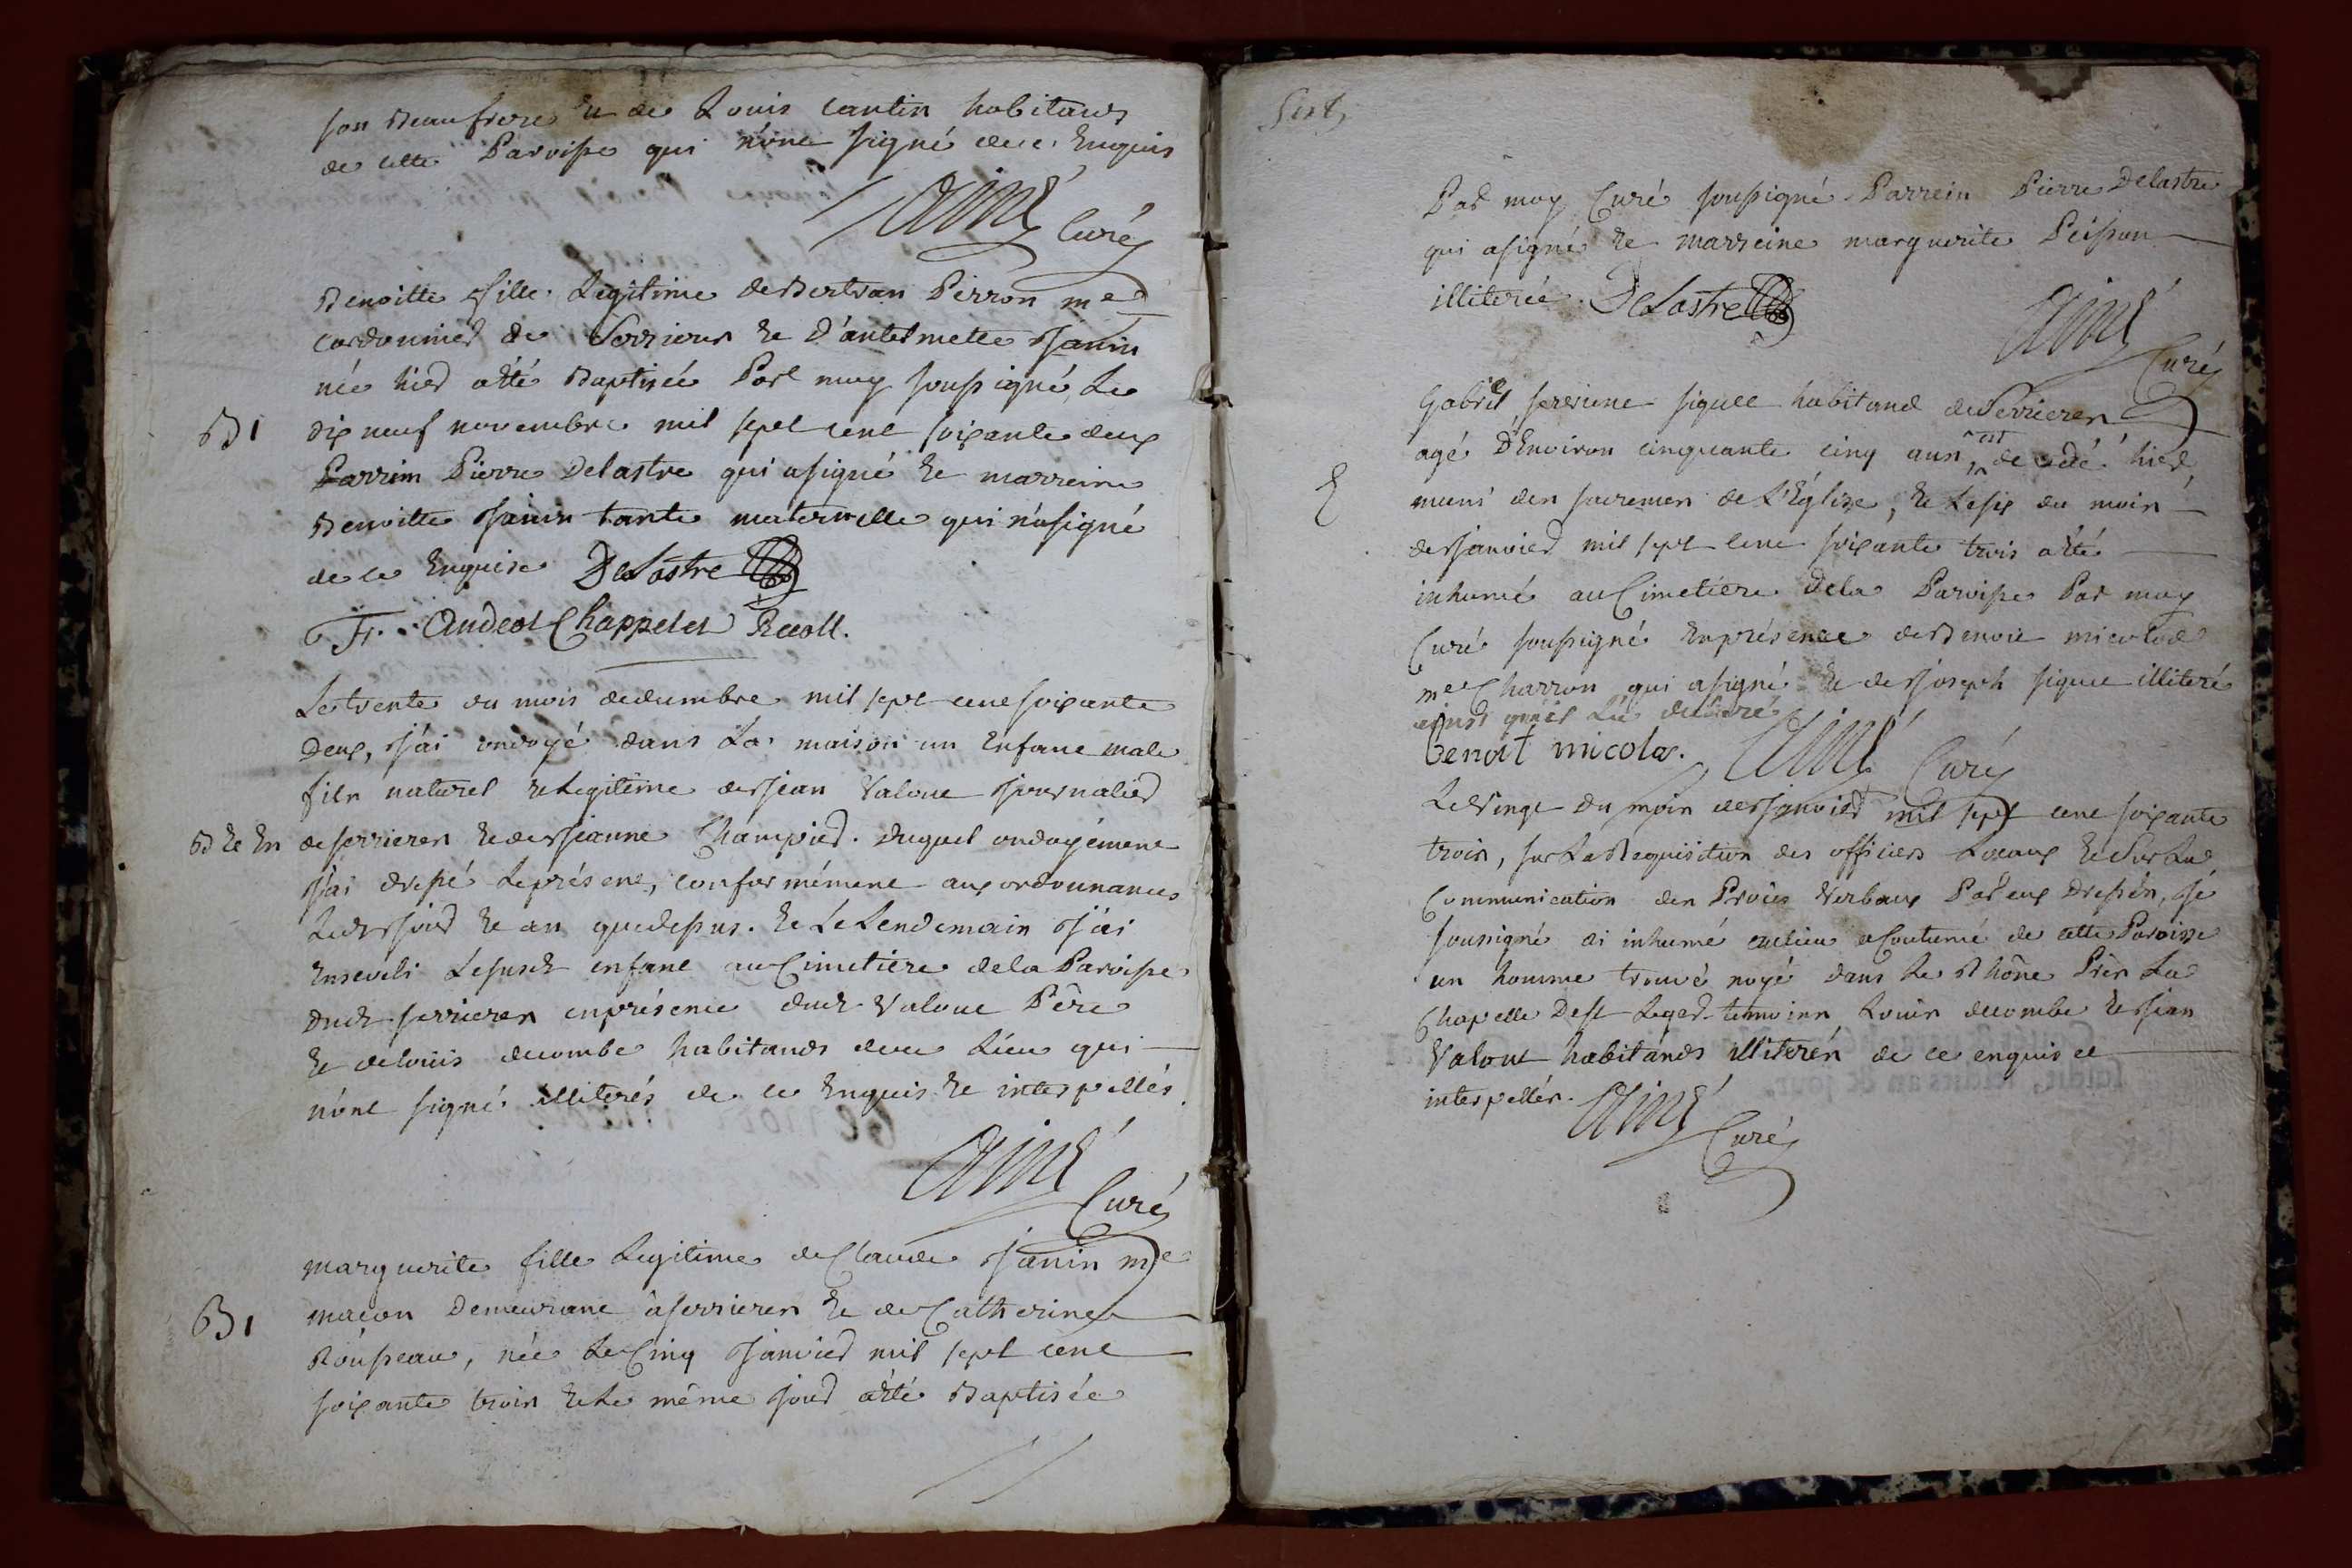 son Beaufrere et de Louis Cantin habitants
de cette Paroisse qui n'ont signé de ce Enquis
Aimé Curé
Benoitte fille Legitime de Bertran Perron me
cordonnier de Serrieres et D'antelmette Janin
née hier a été Baptisée Par moy soussigné Le
B 1
dix neuf novembre mil sept cent soixante deux
Parrein Pierre Delastre qui a signé et marreine
Benoitte Janin tante maternelle qui n'a signé
de ce Enquise DeLastre
Fr. Andeol Chappelet Recoll.
Le trente du mois decembre mil sept cent soixante
Deux, J'ai ondoyé dans La maison un Enfant male
fils naturel et Legitime de Jean Valout Journalier
B et En
de serrieres et de Jeanne Champier. duquel ondoyement
J'ai dressé Le présent, conformément aux ordonnances
Lesd. Jour et an que dessus. et Le Lendemain J'ai
Enseveli Le susdt enfant au Cimetiere de la Paroisse
dudt serrieres en présence dudt Valout Père
et de Louis decombe habitants de ce Lieu qui
n'ont signé illiterés de ce Enquis et interpellés
Aimé Curé
marguerite fille Legitime de Claude Janin me
B 1
maçon Demeurant à serrieres et de Catherine
Rousseau, née Le Cinq Janvier mil sept cent
soixante trois et Le même jour a été Baptisée
Sixt,
Par moy Curé soussigné Parrein Pierre Delastre
qui a signé et marreine marguerite Peisson
illiterée. DeLastre
Aimé Curé
Gabriel siguee habitant de Serrieres
agé D'Environ cinquante cinq ans, est decedé hier
E
muni des sacremens de L'Église, et Le six du mois
de Janvier mil sept cent soixante trois a été
inhumé au Cimetiere de la Paroisse Par moy
Curé soussigné En présence de Benoit micolas
me Charron qui a signé et de Joseph siguee illiteré
ainsi qu'il L'a declaré
benoit micolas. Aimé Curé
Le Vingt du mois de Janvier mil sept cent soixante
trois, sur La Requisition des officiers Locaux et Sur La
Communication des Procès Verbaux Par eux Dressés, Je
soussigné ai inhumé au lieu a Coutumé de cette Paroisse
un homme trouvé noyé dans Le Rhône Près La
Chapelle De St Leger temoins Louis decombe et Jean
Valout habitants illiterés de ce enquis et
interpellés. Aimé Curé